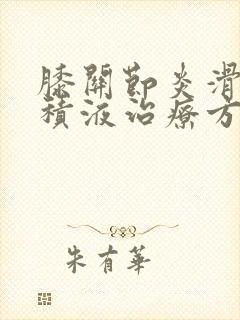 膝關節炎滑
積液治療方
朱有華